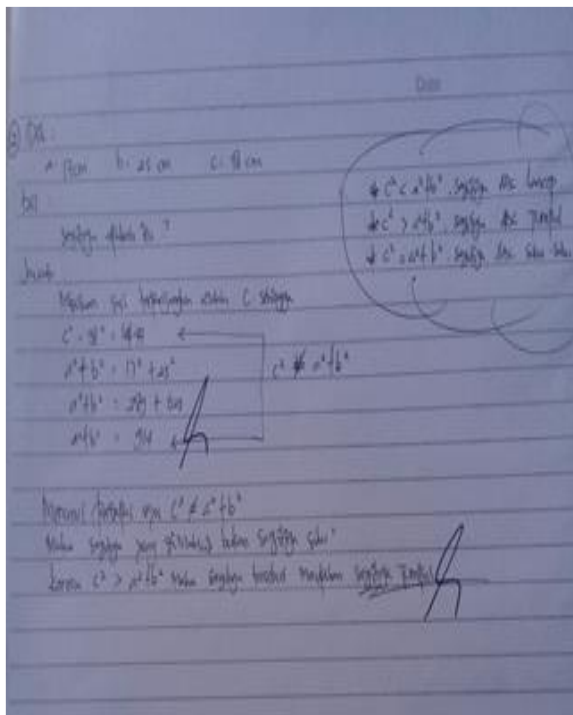 Date
Dik :
a = 17 cm b = 25 cm c = 38 cm
Dit
segitiga apakah itu ?
Jawab
Misalkan sisi terpanjangnya adalah C sehingga
c² = 38² = 1444
a² + b² = 17² + 25²
a² + b² = 289 + 625
a² + b² = 914
c² ≠ a² + b²
* c² < a² + b², segitiga ABC lancip
* c² > a² + b², segitiga ABC tumpul
* c² = a² + b², segitiga ABC siku-siku
Menurut nya c² ≠ a² + b²
Maka segitiga yang bukan segitiga siku²
karena c² > a² + b² maka segitiga tersebut merupakan segitiga tumpul